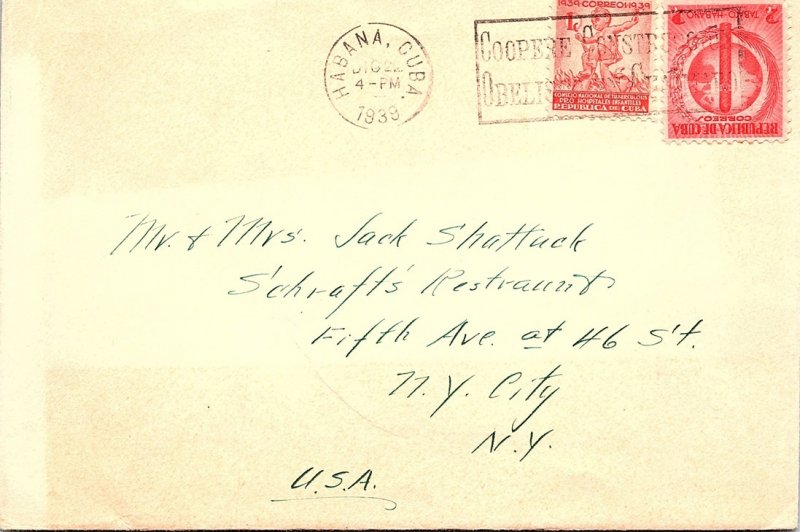 HABANA, CUBA
DIC 22
4-PM
1939
COOPERE
OBELI
1939 CORREO 1939
1
CONSEJO NACIONAL DE TUBERCULOSIS
PRO HOSPITALES INFANTILES
REPUBLICA DE CUBA
REPUBLICA DE CUBA
CORREOS
TABACO HABANO
2
2
Mr. & Mrs. Jack Shattuck
Schrafft's Restraunt
Fifth Ave. at 46 St.
N.Y. City
N.Y.
U.S.A.